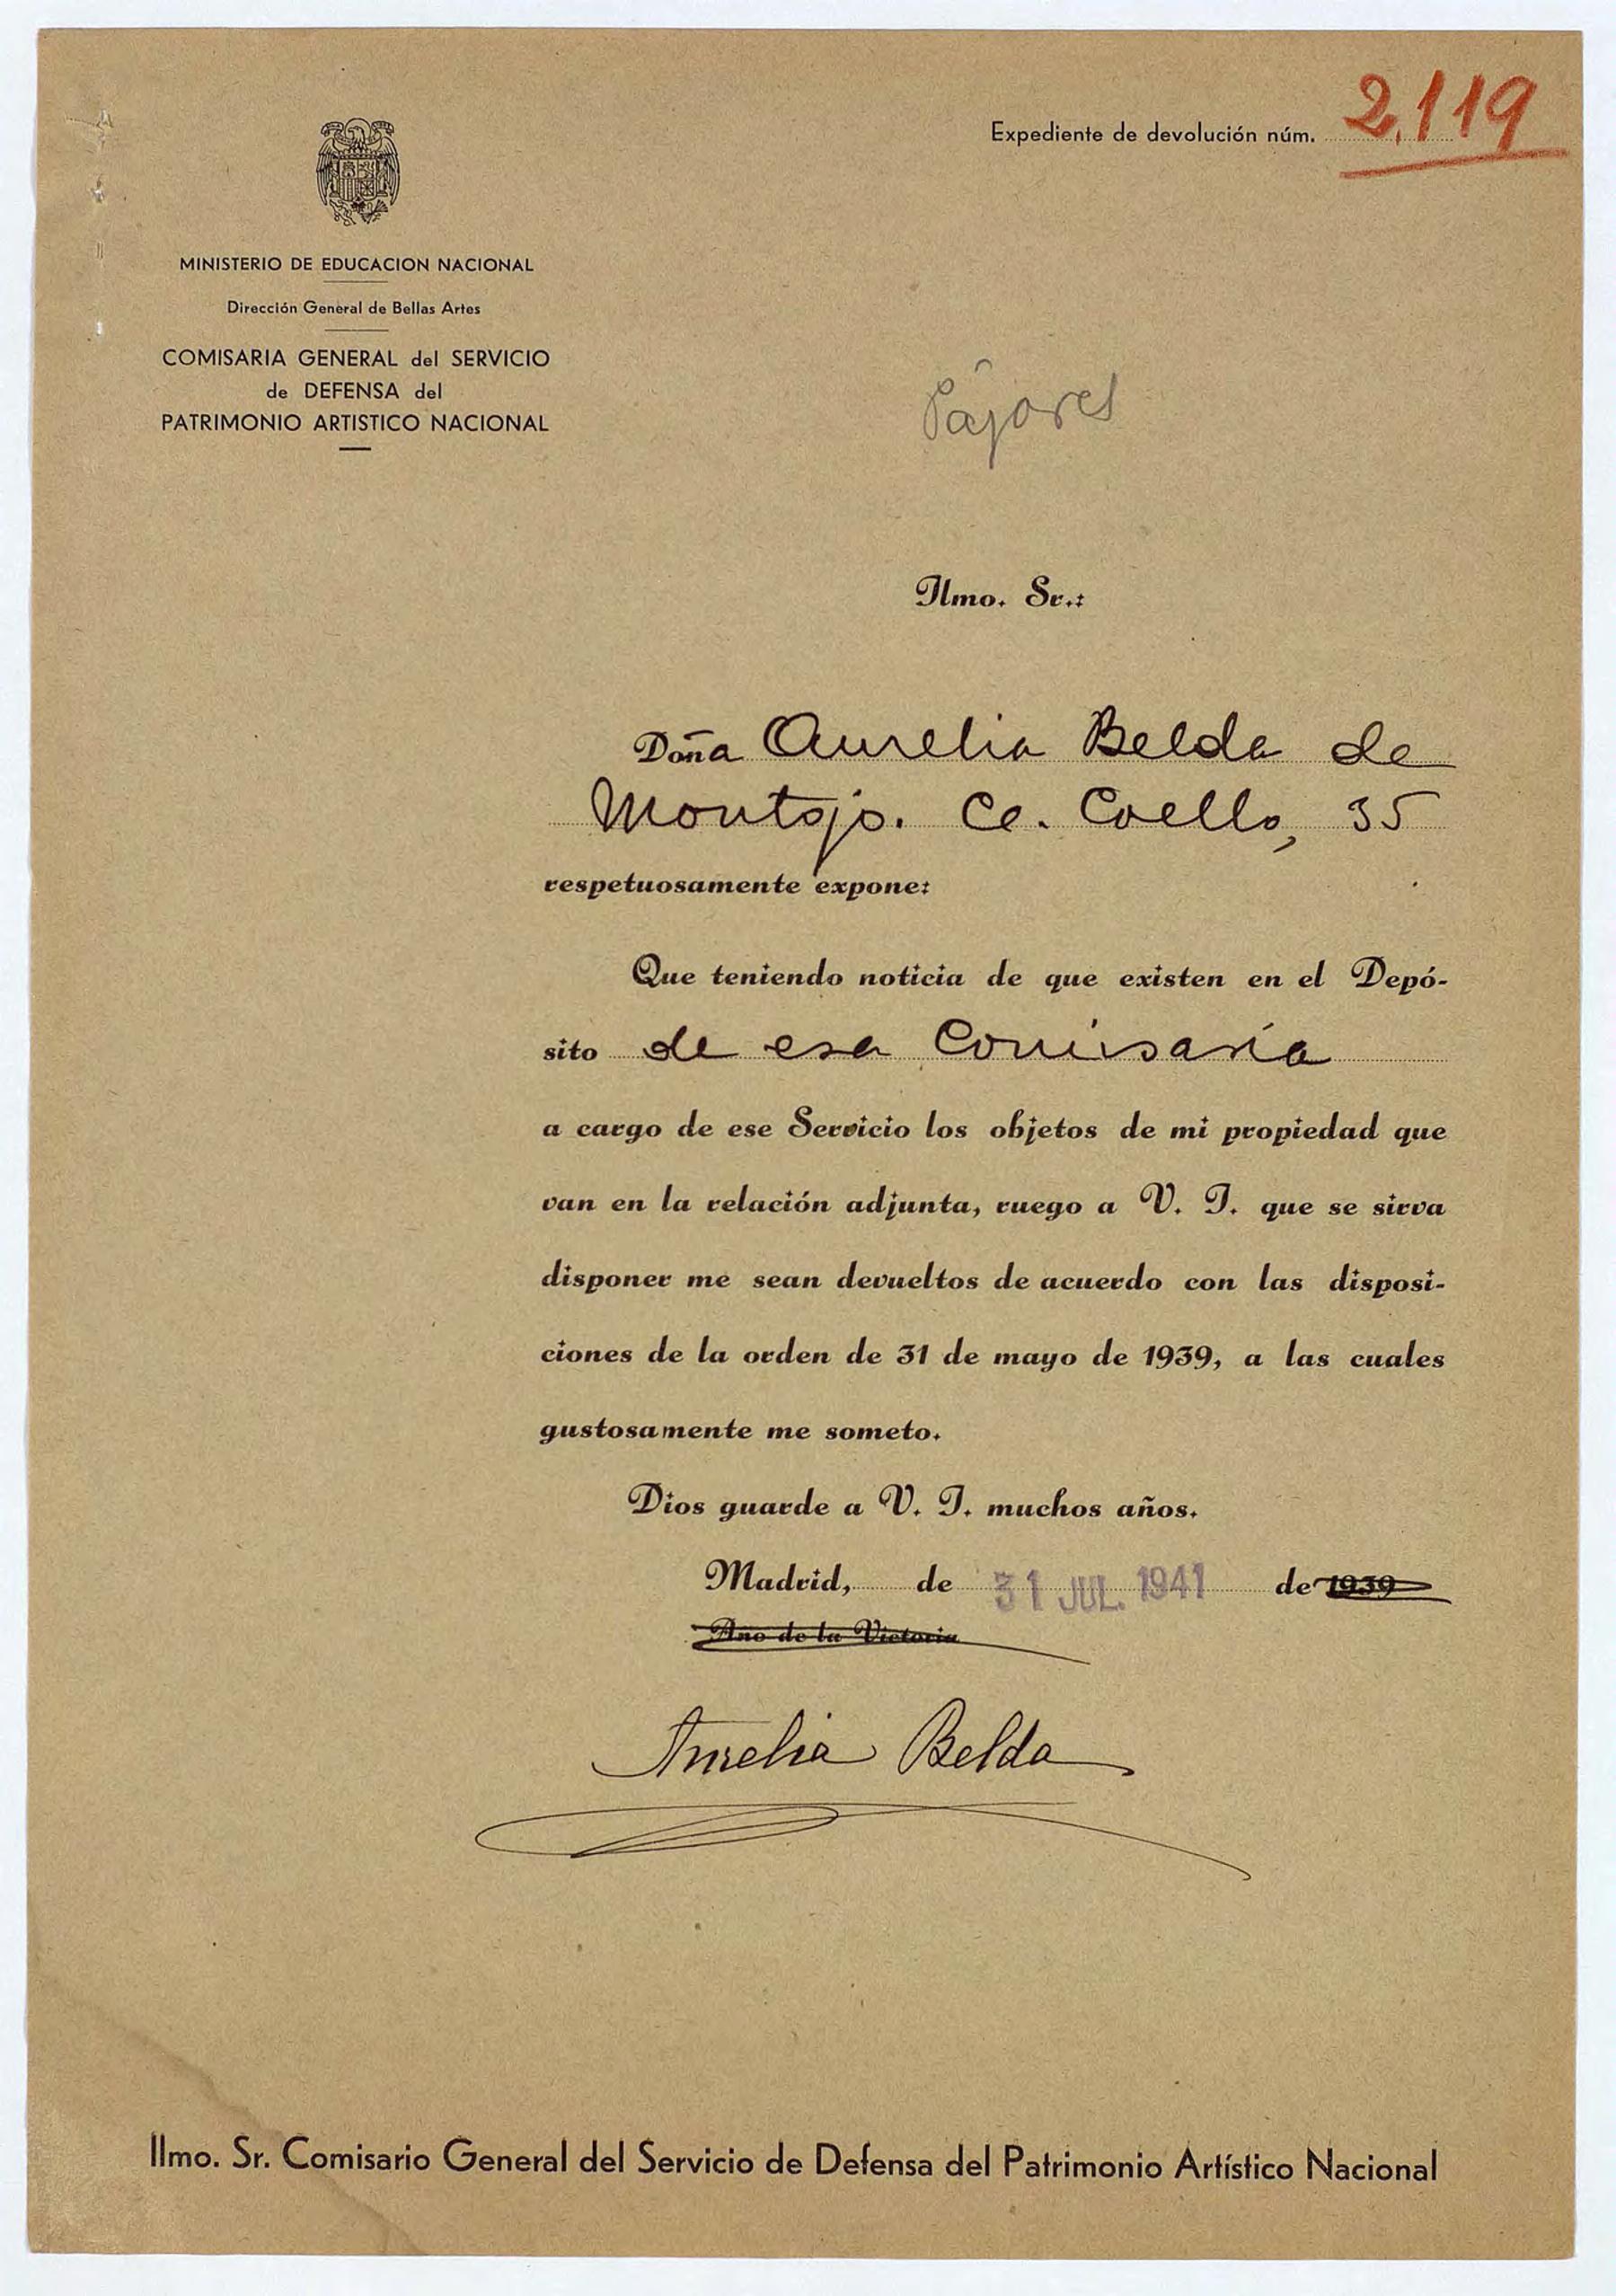 Expediente de devolución núm. 2,119
MINISTERIO DE EDUCACION NACIONAL
Dirección General de Bellas Artes
COMISARIA GENERAL del SERVICIO
de DEFENSA del
PATRIMONIO ARTISTICO NACIONAL
Pajares
Ilmo. Sr.:
Doña Aurelia Belda de
Montojo. Cl. Coello, 35
respetuosamente expone:
Que teniendo noticia de que existen en el Depó-
sito de esa Comisaría
a cargo de ese Servicio los objetos de mi propiedad que
van en la relación adjunta, ruego a V. I. que se sirva
disponer me sean devueltos de acuerdo con las disposi-
ciones de la orden de 31 de mayo de 1939, a las cuales
gustosamente me someto.
Dios guarde a V. I. muchos años.
Madrid, de 31 JUL. 1941 de 1939
Año de la Victoria
Aurelia Belda
Ilmo. Sr. Comisario General del Servicio de Defensa del Patrimonio Artístico Nacional